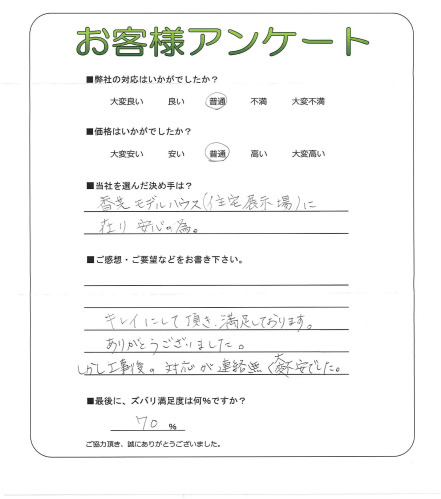 お客様アンケート
■弊社の対応はいかがでしたか？
大変良い 良い 普通 不満 大変不満
■価格はいかがでしたか？
大変安い 安い 普通 高い 大変高い
■当社を選んだ決め手は？
モデルハウス(住宅展示場)に
在り 安心の為。
■ご感想・ご要望などをお書き下さい。
キレイにして頂き、満足しております。
ありがとうございました。
しかし工事後の対応が連絡無く大不安でした。
■最後に、ズバリ満足度は何％ですか？
70 %
ご協力頂き、誠にありがとうございました。